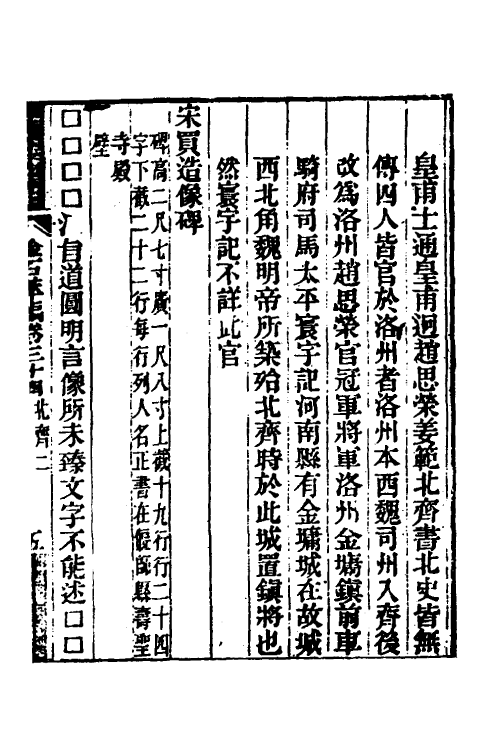 皇甫士通皇甫迥趙思榮姜範北齊書北史皆無
傳四人皆官於洛州者洛州本西魏司州入齊後
改為洛州趙思榮官冠軍將軍洛州金墉鎮前車
騎府司馬太平寰宇記河南縣有金墉城在故城
西北角魏明帝所築殆北齊時於此城置鎮將也
然寰宇記不詳此官
宋買造像碑
碑高二尺七寸廣一尺八寸上截十九行行二十四
字下截二十二行每行列人名正書在偃師縣壽聖
寺殿
壁
□□□□自道圓明言像所未臻文字不能述□□
金石萃編卷三十四 北齊二 五